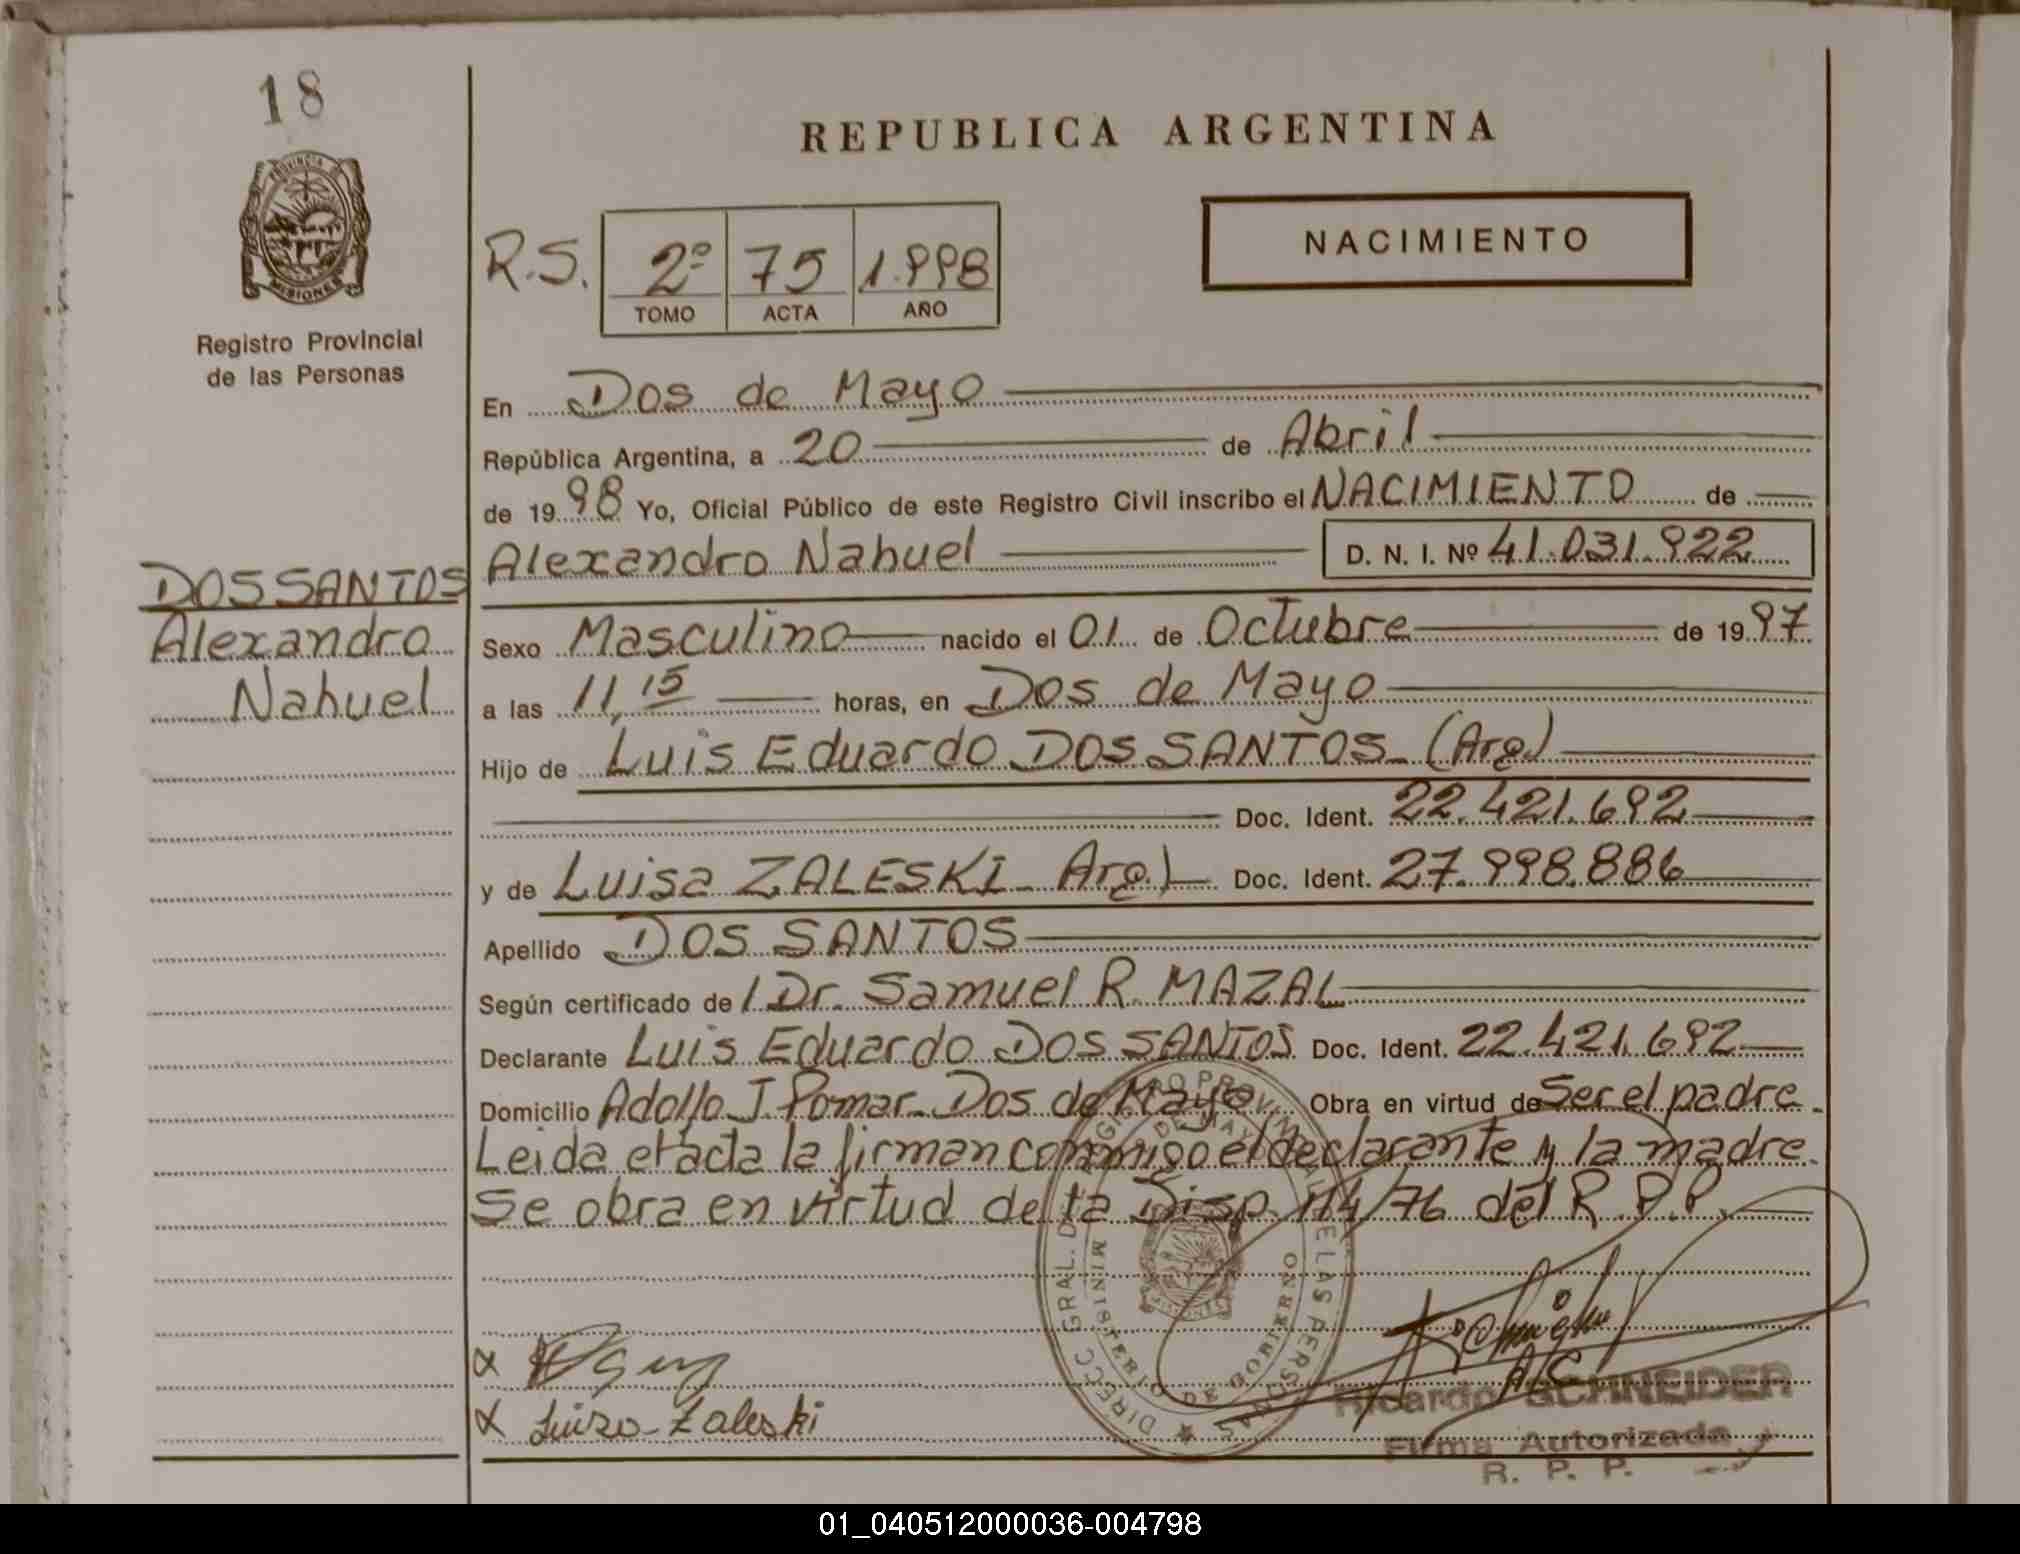 18
PROVINCIA DE
MISIONES
Registro Provincial
de las Personas
DOS SANTOS
Alexandro
Nahuel
REPUBLICA ARGENTINA
NACIMIENTO
R.S. 2º 75 1.998
TOMO ACTA AÑO
En Dos de Mayo
República Argentina, a 20 de Abril
de 1998 Yo, Oficial Público de este Registro Civil inscribo el NACIMIENTO de
Alexandro Nahuel D. N. I. Nº 41.031.922
Sexo Masculino nacido el 01 de Octubre de 1997
a las 11,15 horas, en Dos de Mayo
Hijo de Luis Eduardo DOS SANTOS - (Arg.)
Doc. Ident. 22.421.692
y de Luisa ZALESKI - Arg.) Doc. Ident. 27.998.886
Apellido DOS SANTOS
Según certificado de / Dr. Samuel R. MAZAL
Declarante Luis Eduardo DOS SANTOS Doc. Ident. 22.421.692
Domicilio Adolfo J. Pomar - Dos de Mayo Obra en virtud de Ser el padre.
Leida el acta la firman conmigo el declarante y la madre.
Se obra en virtud de la Disp. 114/76 del R.P.P.
DIRECC GRAL. DEL REGISTRO PROVINCIAL DE LAS PERSONAS
DOS DE MAYO
MINISTERIO DE GOBIERNO
Luiza Zaleski
Ricardo SCHNEIDER
Firma Autorizada
R. P. P.
01_040512000036-004798